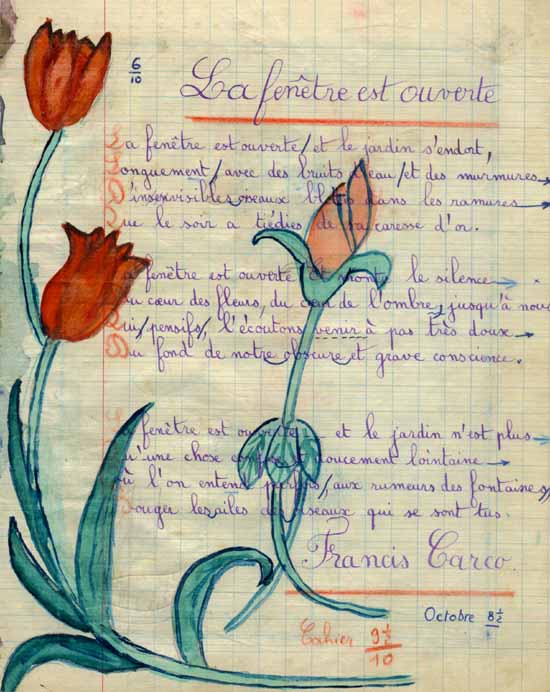 6/10
La fenêtre est ouverte
La fenêtre est ouverte/et le jardin s'endort,
Longuement/avec des bruits d'eau/et des murmures→
D'insensibles oiseaux blottis dans les ramures→
Que le soir a tiédies de sa caresse d'or.
La fenêtre est ouverte et monte le silence→
Du cœur des fleurs, du cœur de l'ombre, jusqu'à nous
Qui/pensifs/, l'écoutons venir à pas très doux→
Du fond de notre obscure et grave conscience.
La fenêtre est ouverte/ et le jardin n'est plus→
Qu'une chose confuse et doucement lointaine→
Où l'on entend parfois,/aux rumeurs des fontaines,/
Bouger les ailes des oiseaux qui se sont tus.
Francis Carco.
Octobre 8 1/2
Cahier 9 1/2/10